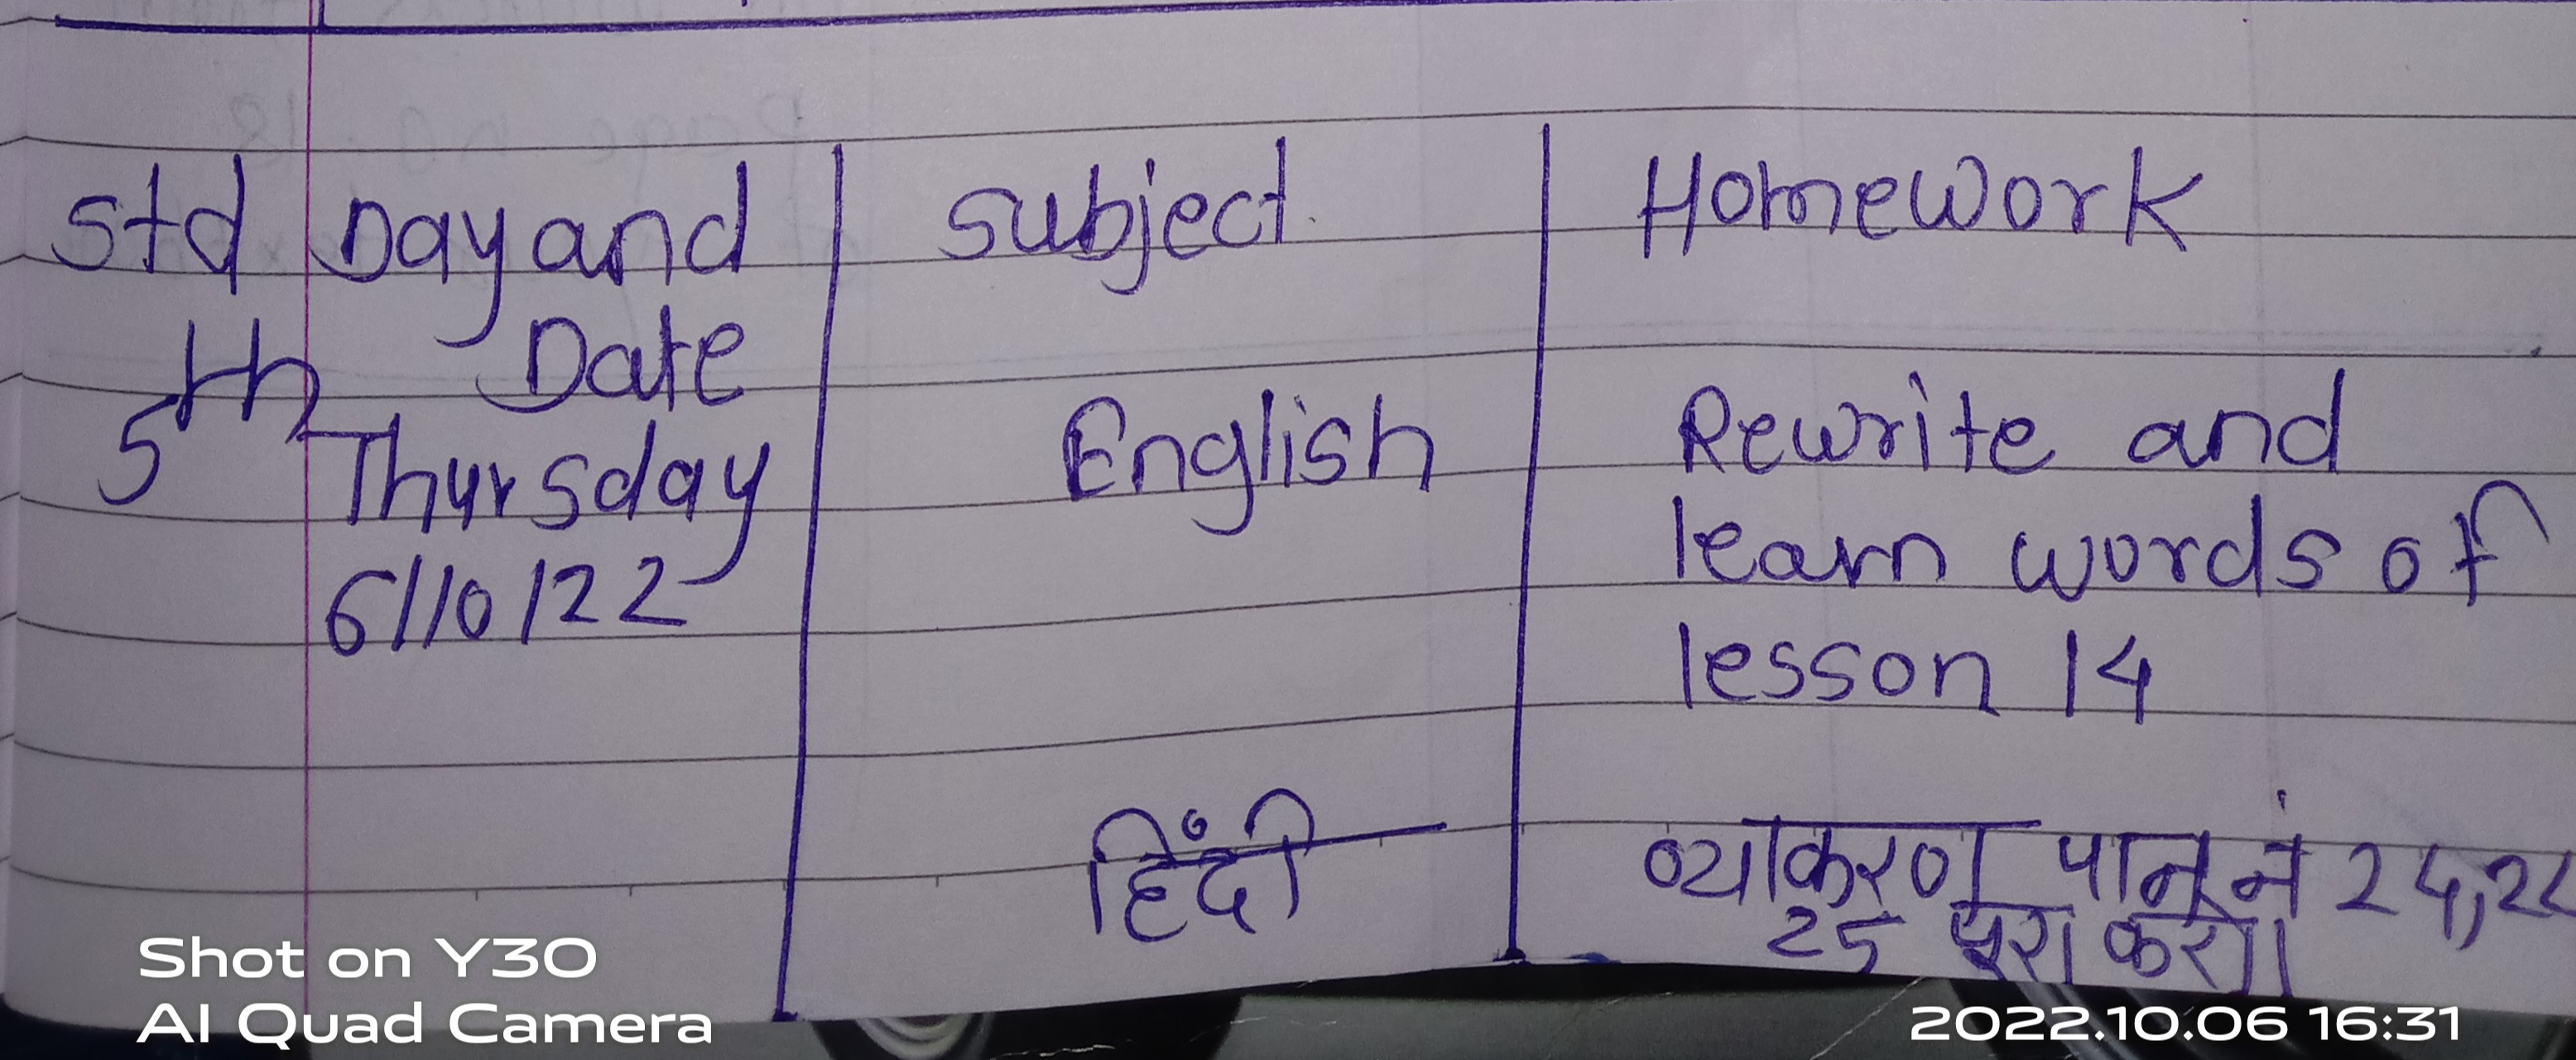 Std Day and Date subject Homework
5th Thursday English Rewrite and
6/10/22 learn words of
lesson 14
हिंदी व्याकरण पान नं 24,
25 पूरा करो।
Shot on Y30
AI Quad Camera
2022.10.06 16:31